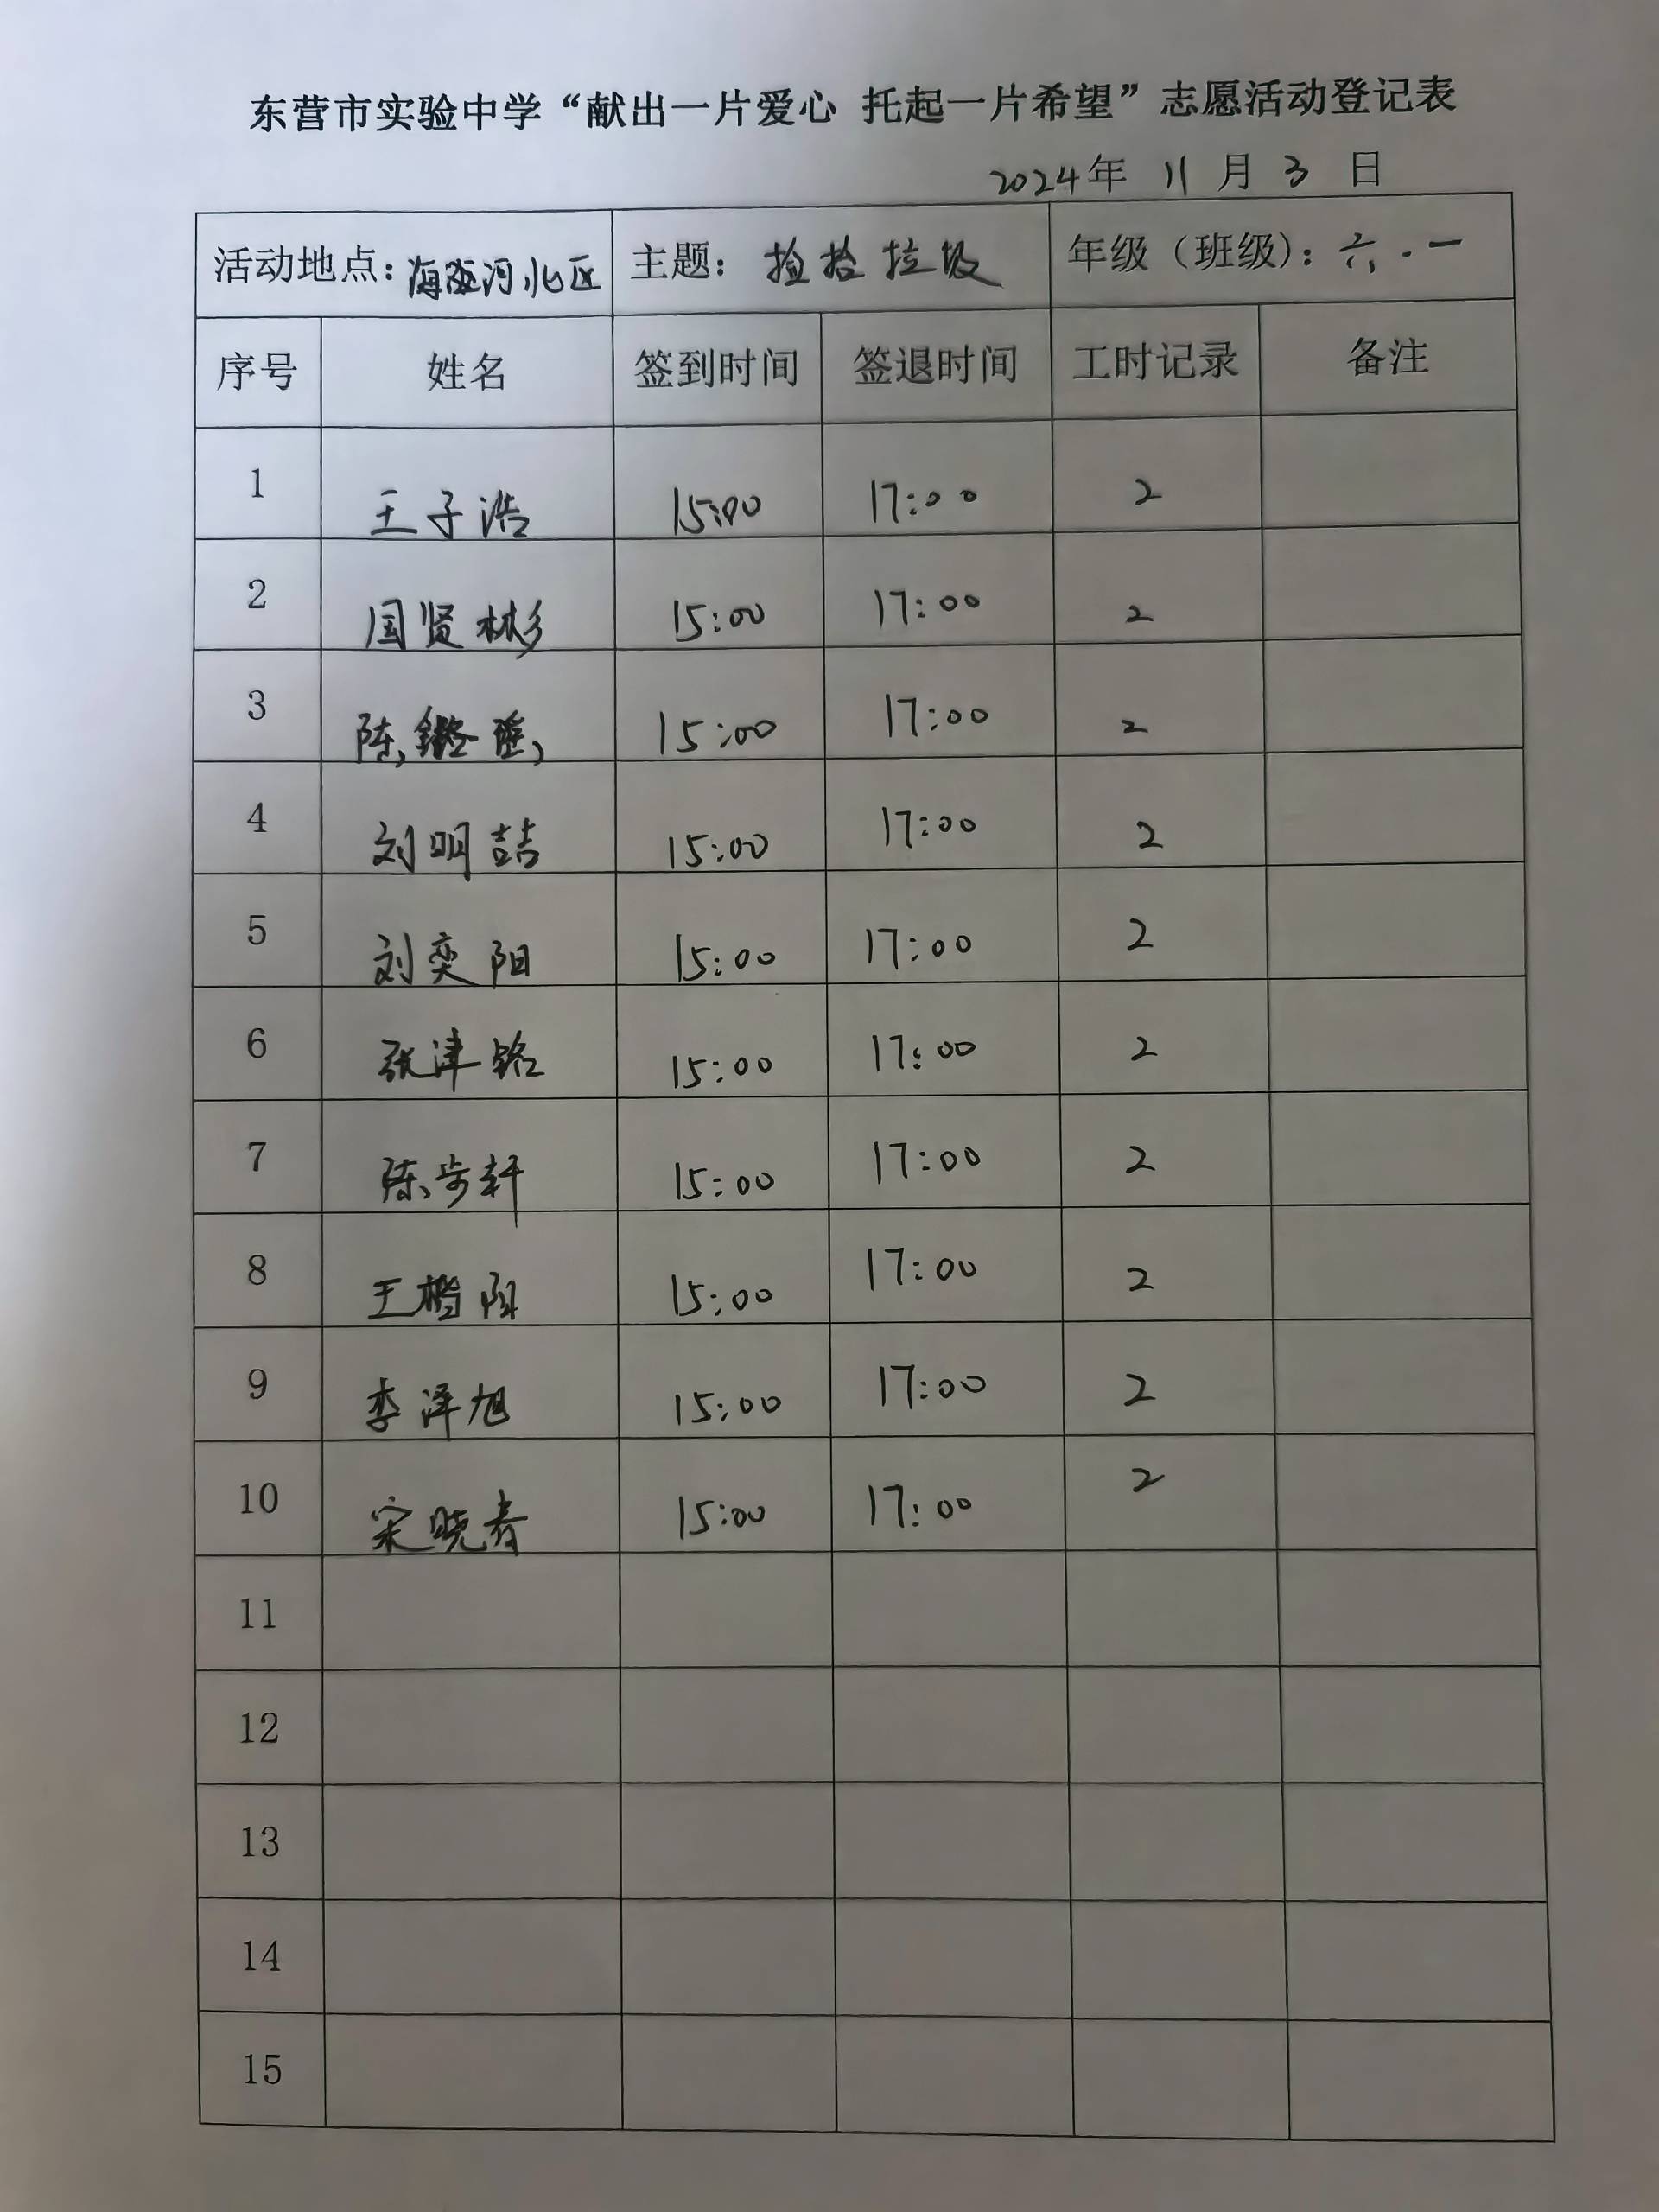 东营市实验中学“献出一片爱心 托起一片希望”志愿活动登记表
2024年 11月 3 日
活动地点：海河北区 主题：捡拾垃圾 年级（班级）：六.一
序号 姓名 签到时间 签退时间 工时记录 备注
1 王子浩 15:00 17:00 2
2 国贤彬 15:00 17:00 2
3 陈 15:00 17:00 2
4 刘明喆 15:00 17:00 2
5 刘奕阳 15:00 17:00 2
6 张津铭 15:00 17:00 2
7 陈步轩 15:00 17:00 2
8 王楷阳 15:00 17:00 2
9 李泽旭 15:00 17:00 2
10 宋晓春 15:00 17:00 2
11
12
13
14
15